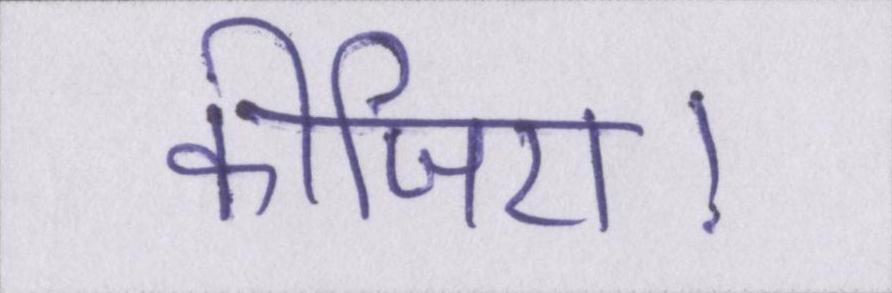 कीजिए!